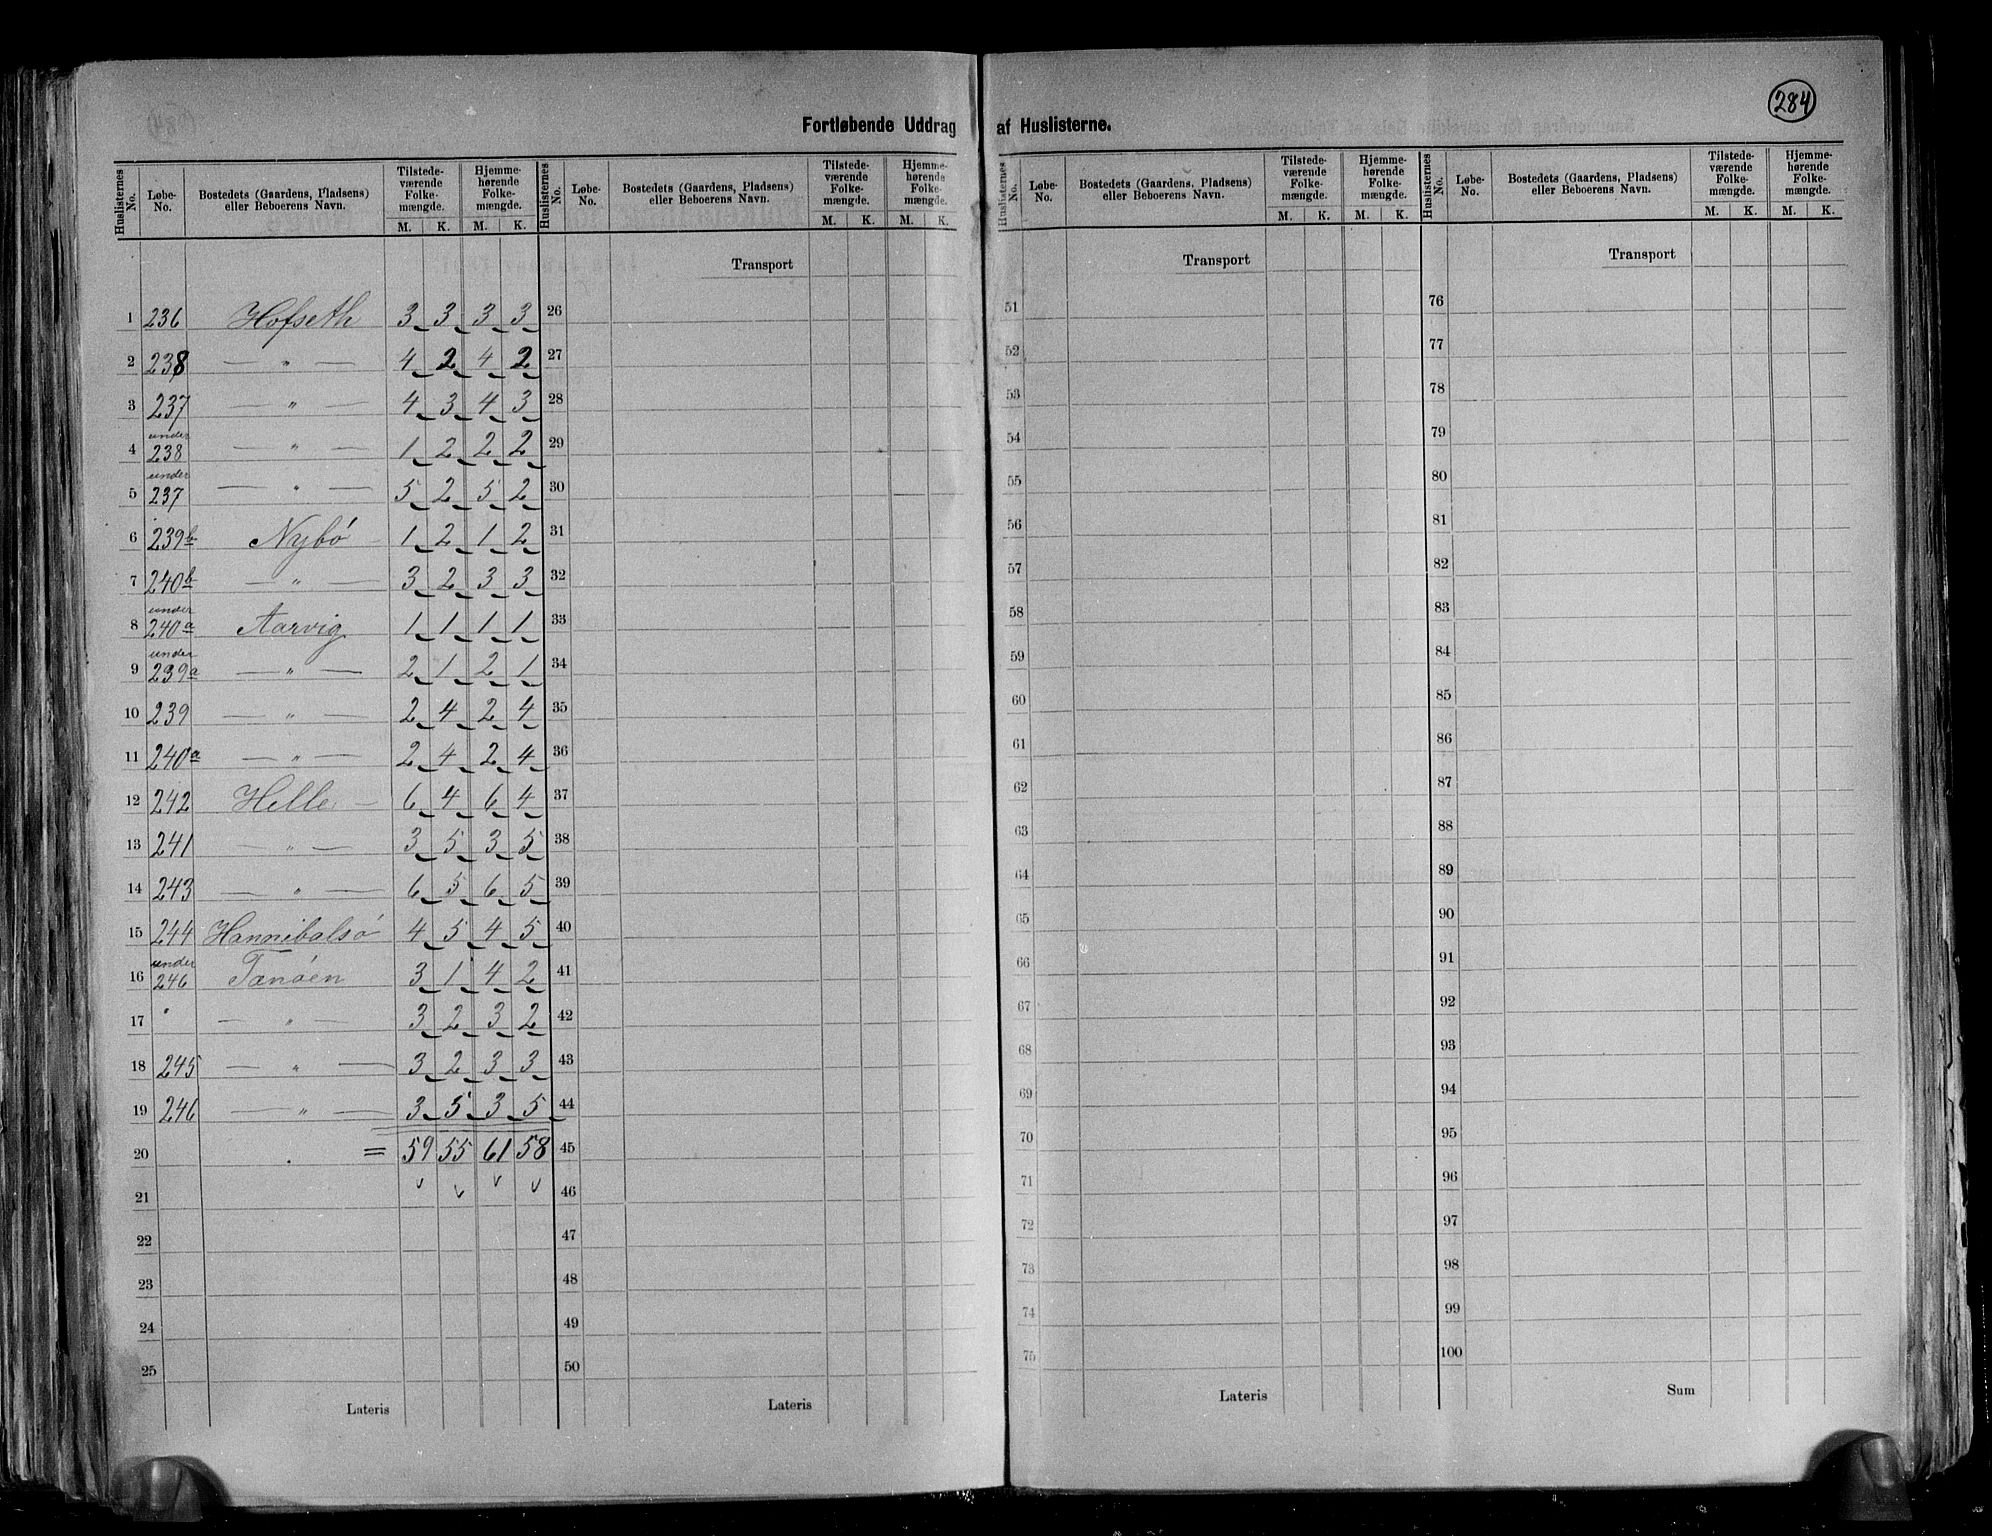 284
Fortløbende Uddrag af Huslisterne.
Huslisternes No. | Løbe-No. | Bostedets (Gaardens, Pladsens) eller Beboerens Navn. | Tilstedeværende Folkemængde. M. K. | Hjemmehørende Folkemængde. M. K.
1 236 Hofseth 3 3 3 3
2 238 — " — 4 2 4 2
3 237 — " — 4 3 4 3
4 under 238 — " — 1 2 2 2
5 under 237 — " — 5 2 5 2
6 239b Nybö 1 2 1 2
7 240b — " — 3 2 3 3
8 under 240a Aarvig 1 1 1 1
9 under 239a — " — 2 1 2 1
10 239 — " — 2 4 2 4
11 240a — " — 2 4 2 4
12 242 Helle 6 4 6 4
13 241 — " — 3 5 3 5
14 243 — " — 6 5 6 5
15 244 Hannibalsö 4 5 4 5
16 under 246 Tanöen 3 1 4 2
17 " — " — 3 2 3 2
18 245 — " — 3 2 3 3
19 246 — " — 3 5 3 5
20 = 59 55 61 58
21
22
23
24
25
Lateris
Huslisternes No. | Løbe-No. | Bostedets (Gaardens, Pladsens) eller Beboerens Navn. | Tilstedeværende Folkemængde. M. K. | Hjemmehørende Folkemængde. M. K.
Transport
26
27
28
29
30
31
32
33
34
35
36
37
38
39
40
41
42
43
44
45
46
47
48
49
50
Lateris
Huslisternes No. | Løbe-No. | Bostedets (Gaardens, Pladsens) eller Beboerens Navn. | Tilstedeværende Folkemængde. M. K. | Hjemmehørende Folkemængde. M. K.
Transport
51
52
53
54
55
56
57
58
59
60
61
62
63
64
65
66
67
68
69
70
71
72
73
74
75
Lateris
Huslisternes No. | Løbe-No. | Bostedets (Gaardens, Pladsens) eller Beboerens Navn. | Tilstedeværende Folkemængde. M. K. | Hjemmehørende Folkemængde. M. K.
Transport
76
77
78
79
80
81
82
83
84
85
86
87
88
89
90
91
92
93
94
95
96
97
98
99
100
Sum